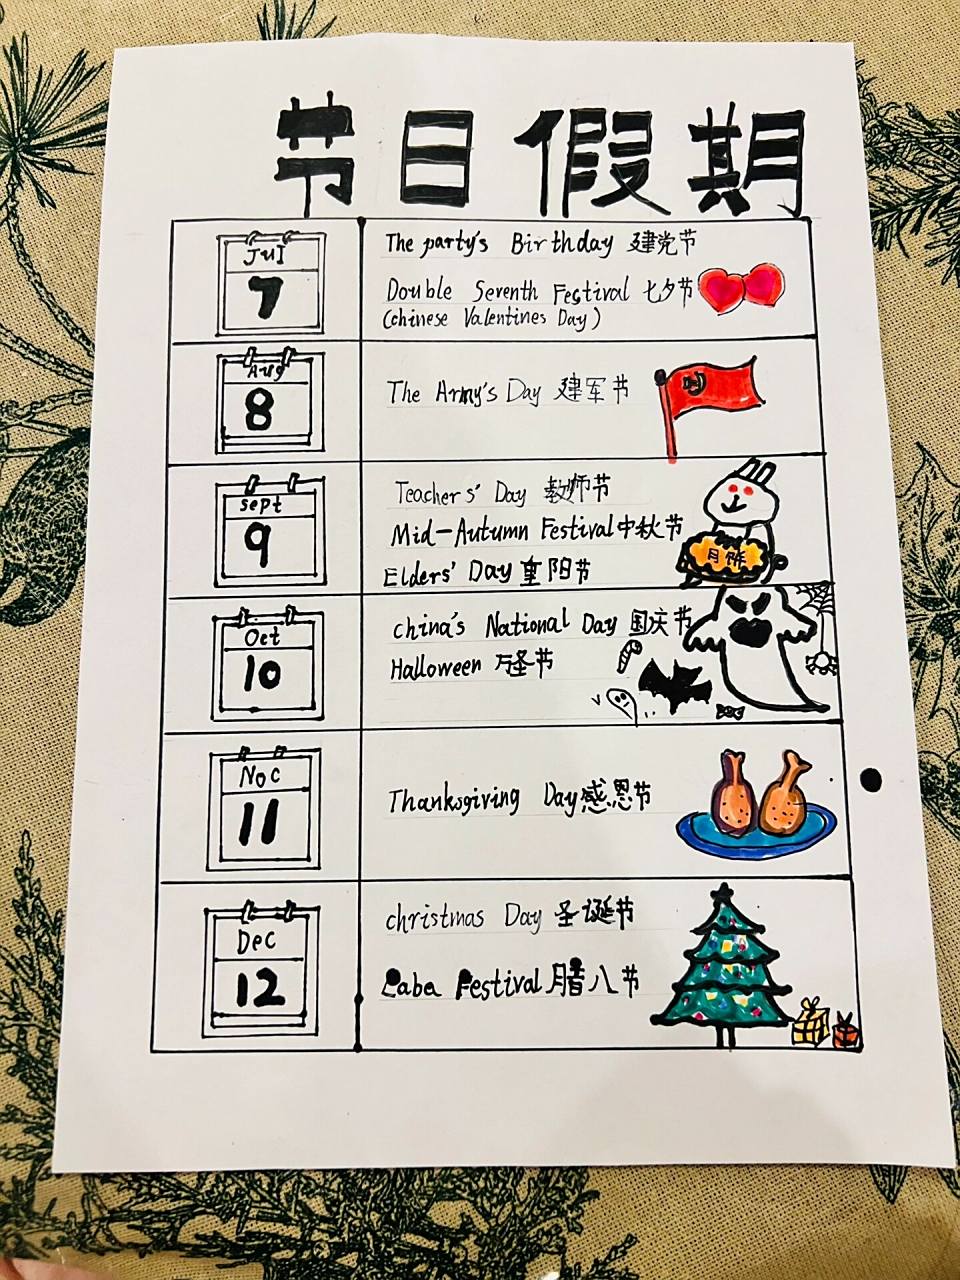 节日假期
Jul
7
The party's Birthday 建党节
Double Seventh Festival 七夕节
(chinese Valentines Day)
Aug
8
The Army's Day 建军节
sept
9
Teachers' Day 教师节
Mid-Autumn Festival 中秋节
Elders' Day 重阳节
月饼
Oct
10
china's National Day 国庆节
Halloween 万圣节
Noc
11
Thanksgiving Day 感恩节
Dec
12
christmas Day 圣诞节
Laba Festival 腊八节